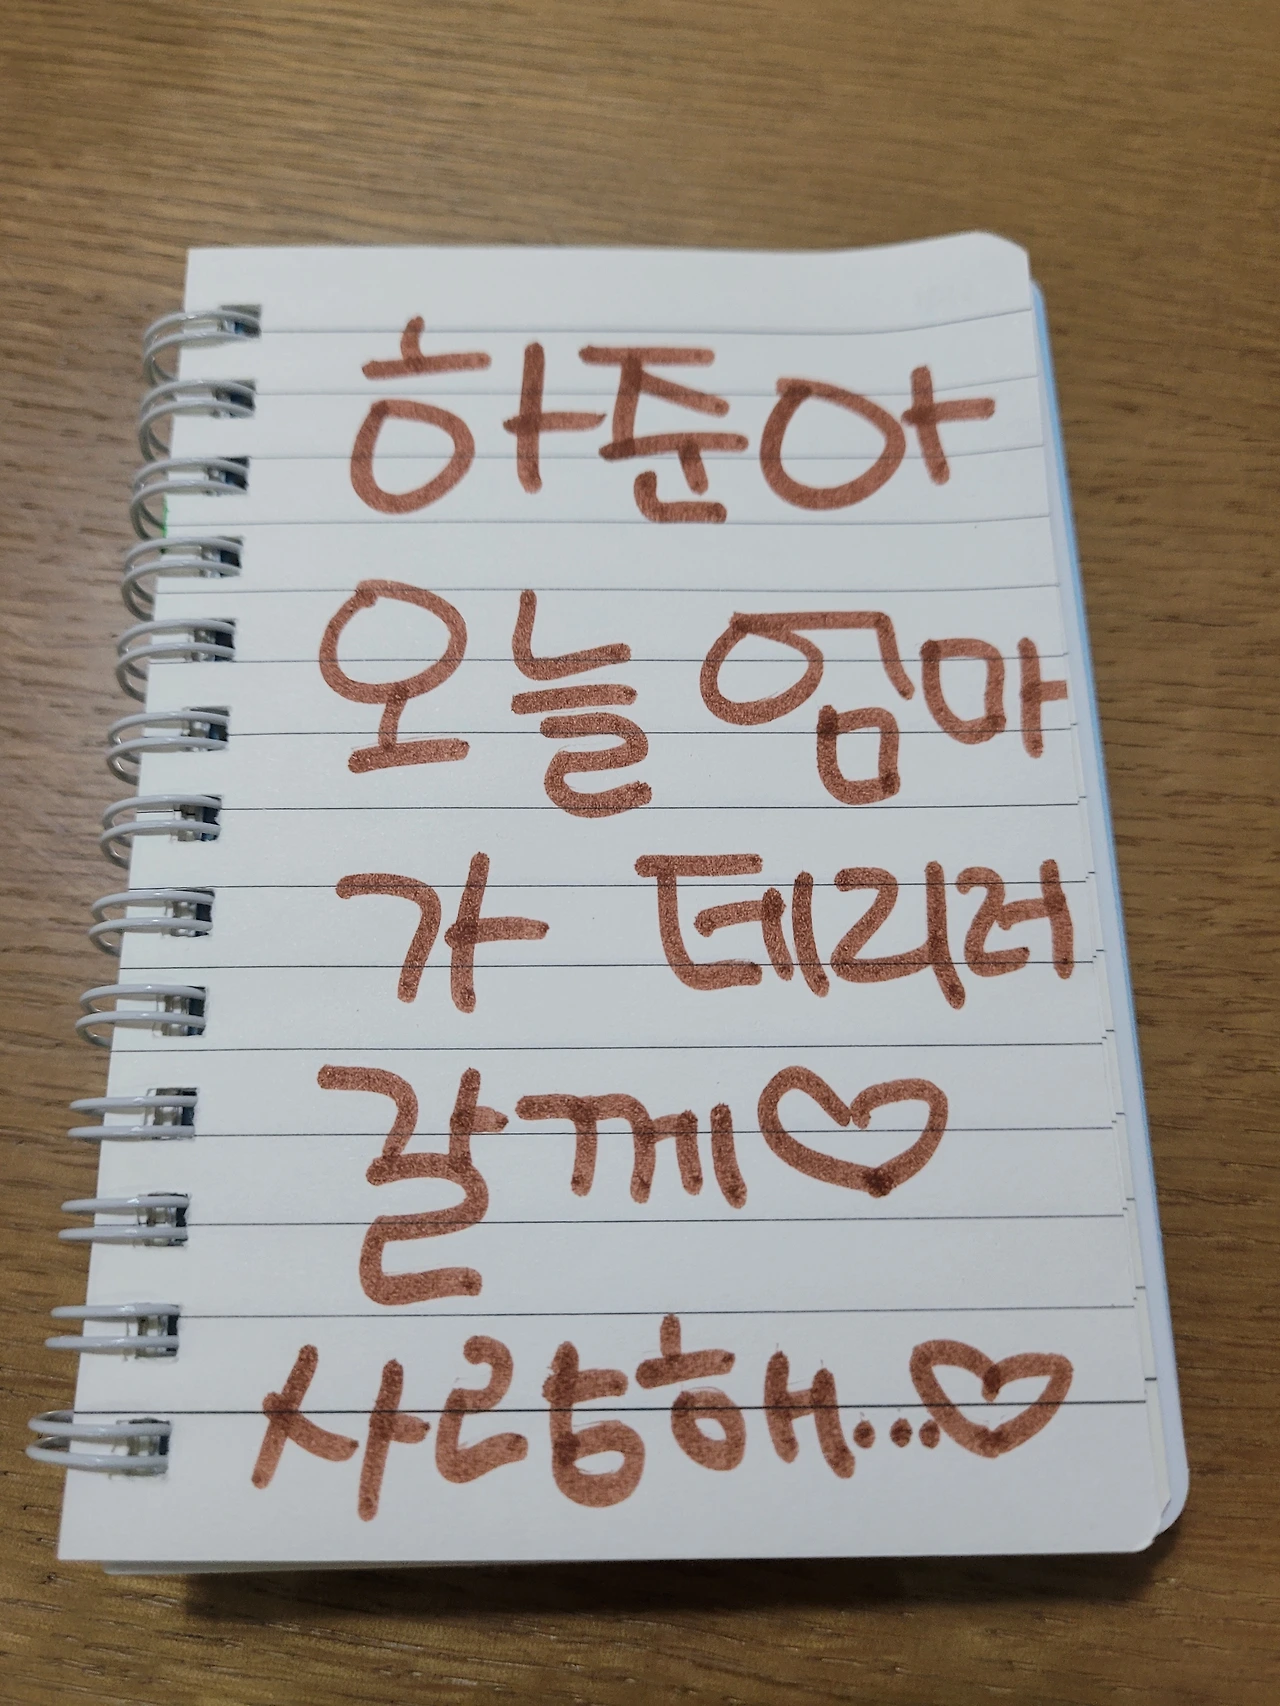 하준아
오늘 엄마
가 테리러
갈께♡
사랑해...♡